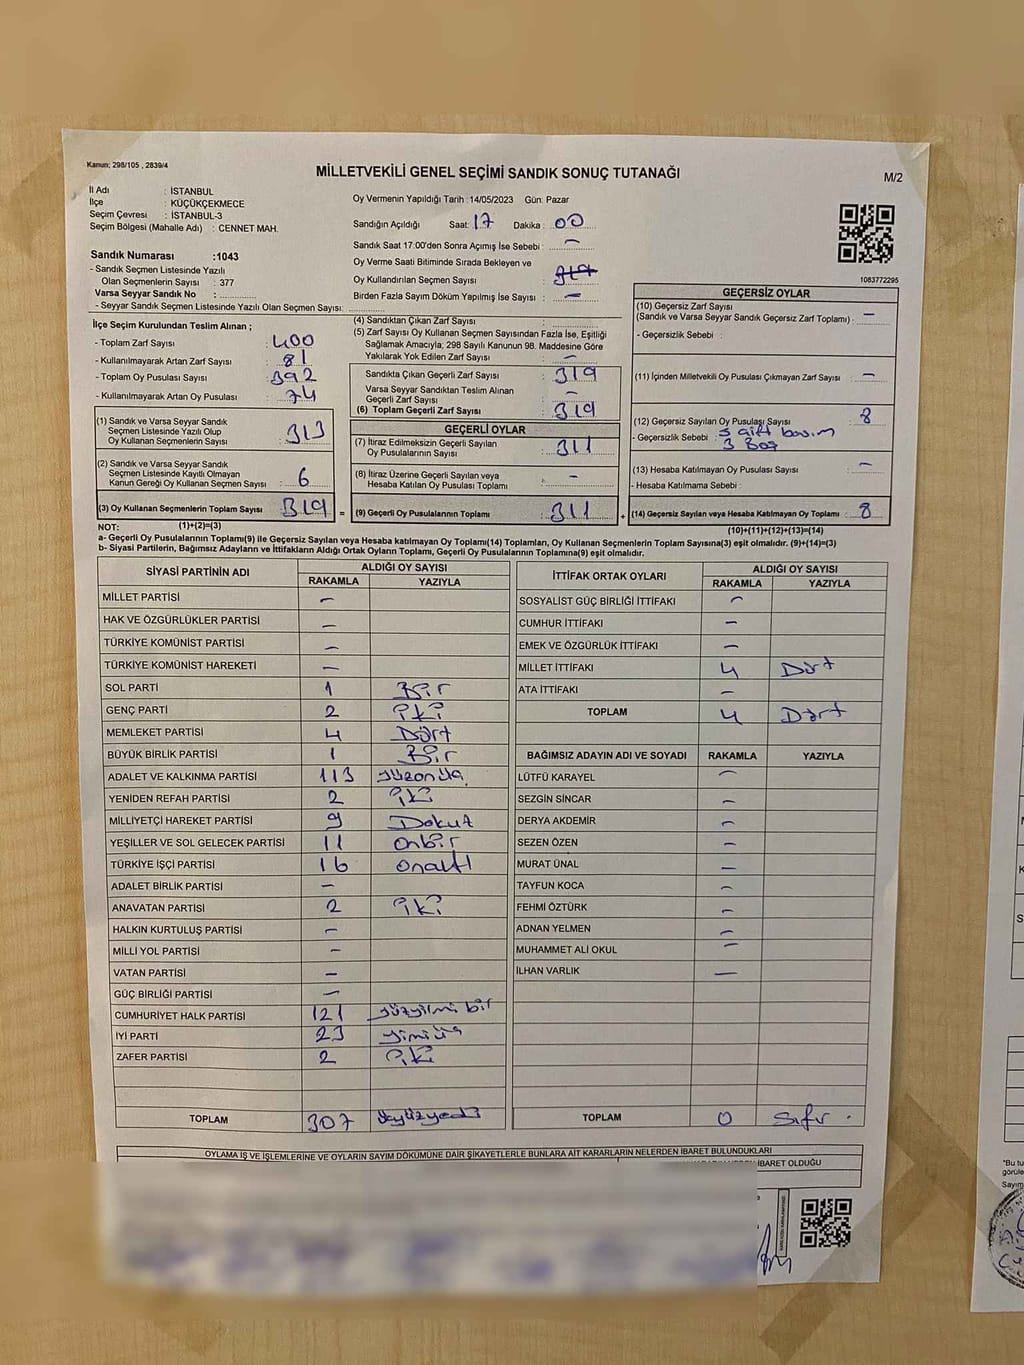 Kanun: 298/105 , 2839/4
MİLLETVEKİLİ GENEL SEÇİMİ SANDIK SONUÇ TUTANAĞI
M/2
İl Adı : İSTANBUL
İlçe : KÜÇÜKÇEKMECE
Seçim Çevresi : İSTANBUL-3
Seçim Bölgesi (Mahalle Adı) : CENNET MAH.
Sandık Numarası :1043
- Sandık Seçmen Listesinde Yazılı
Olan Seçmenlerin Sayısı : 377
Varsa Seyyar Sandık No :
- Seyyar Sandık Seçmen Listesinde Yazılı Olan Seçmen Sayısı:
İlçe Seçim Kurulundan Teslim Alınan ;
- Toplam Zarf Sayısı : 400
- Kullanılmayarak Artan Zarf Sayısı : 81
- Toplam Oy Pusulası Sayısı : 392
- Kullanılmayarak Artan Oy Pusulası : 74
(1) Sandık ve Varsa Seyyar Sandık
Seçmen Listesinde Yazılı Olup
Oy Kullanan Seçmenlerin Sayısı : 313
(2) Sandık ve Varsa Seyyar Sandık
Seçmen Listesinde Kayıtlı Olmayan
Kanun Gereği Oy Kullanan Seçmen Sayısı : 6
(3) Oy Kullanan Seçmenlerin Toplam Sayısı : 319
(1)+(2)=(3)
Oy Vermenin Yapıldığı Tarih :14/05/2023 Gün: Pazar
Sandığın Açıldığı Saat: 17 Dakika : 00
Sandık Saat 17:00'den Sonra Açımış İse Sebebi : –
Oy Verme Saati Bitiminde Sırada Bekleyen ve
Oy Kullandırılan Seçmen Sayısı :
Birden Fazla Sayım Döküm Yapılmış İse Sayısı : –
(4) Sandıktan Çıkan Zarf Sayısı :
(5) Zarf Sayısı Oy Kullanan Seçmen Sayısından Fazla İse, Eşitliği
Sağlamak Amacıyla; 298 Sayılı Kanunun 98. Maddesine Göre
Yakılarak Yok Edilen Zarf Sayısı : –
Sandıkta Çıkan Geçerli Zarf Sayısı : 319
Varsa Seyyar Sandıktan Teslim Alınan
Geçerli Zarf Sayısı : –
(6) Toplam Geçerli Zarf Sayısı : 319
GEÇERLİ OYLAR
(7) İtiraz Edilmeksizin Geçerli Sayılan
Oy Pusulalarının Sayısı : 311
(8) İtiraz Üzerine Geçerli Sayılan veya
Hesaba Katılan Oy Pusulası Toplamı : –
= (9) Geçerli Oy Pusulalarının Toplamı : 311 +
1083772295
GEÇERSİZ OYLAR
(10) Geçersiz Zarf Sayısı
(Sandık ve Varsa Seyyar Sandık Geçersiz Zarf Toplamı) : –
- Geçersizlik Sebebi :
(11) İçinden Milletvekili Oy Pusulası Çıkmayan Zarf Sayısı : –
(12) Geçersiz Sayılan Oy Pusulası Sayısı : 8
- Geçersizlik Sebebi : 5 çift basım
3 Boş
(13) Hesaba Katılmayan Oy Pusulası Sayısı : –
- Hesaba Katılmama Sebebi :
(14) Geçersiz Sayılan veya Hesaba Katılmayan Oy Toplamı : 8
(10)+(11)+(12)+(13)=(14)
NOT:
a- Geçerli Oy Pusulalarının Toplamı(9) ile Geçersiz Sayılan veya Hesaba katılmayan Oy Toplamı(14) Toplamları, Oy Kullanan Seçmenlerin Toplam Sayısına(3) eşit olmalıdır. (9)+(14)=(3)
b- Siyasi Partilerin, Bağımsız Adayların ve İttifakların Aldığı Ortak Oyların Toplamı, Geçerli Oy Pusulalarının Toplamına(9) eşit olmalıdır.
SİYASİ PARTİNİN ADI ALDIĞI OY SAYISI
RAKAMLA YAZIYLA
MİLLET PARTİSİ –
HAK VE ÖZGÜRLÜKLER PARTİSİ –
TÜRKİYE KOMÜNİST PARTİSİ –
TÜRKİYE KOMÜNİST HAREKETİ –
SOL PARTİ 1 Bir
GENÇ PARTİ 2 iki
MEMLEKET PARTİSİ 4 Dört
BÜYÜK BİRLİK PARTİSİ 1 Bir
ADALET VE KALKINMA PARTİSİ 113 yüzonüç
YENİDEN REFAH PARTİSİ 2 iki
MİLLİYETÇİ HAREKET PARTİSİ 9 Dokuz
YEŞİLLER VE SOL GELECEK PARTİSİ 11 onbir
TÜRKİYE İŞÇİ PARTİSİ 16 onaltı
ADALET BİRLİK PARTİSİ –
ANAVATAN PARTİSİ 2 iki
HALKIN KURTULUŞ PARTİSİ –
MİLLİ YOL PARTİSİ –
VATAN PARTİSİ –
GÜÇ BİRLİĞİ PARTİSİ –
CUMHURİYET HALK PARTİSİ 121 yüzyirmi bir
İYİ PARTİ 23
ZAFER PARTİSİ 2 iki
TOPLAM 307 üçyüzyedi
İTTİFAK ORTAK OYLARI ALDIĞI OY SAYISI
RAKAMLA YAZIYLA
SOSYALİST GÜÇ BİRLİĞİ İTTİFAKI –
CUMHUR İTTİFAKI –
EMEK VE ÖZGÜRLÜK İTTİFAKI –
MİLLET İTTİFAKI 4 Dört
ATA İTTİFAKI –
TOPLAM 4 Dört
BAĞIMSIZ ADAYIN ADI VE SOYADI RAKAMLA YAZIYLA
LÜTFÜ KARAYEL –
SEZGİN SİNCAR –
DERYA AKDEMİR –
SEZEN ÖZEN –
MURAT ÜNAL –
TAYFUN KOCA –
FEHMİ ÖZTÜRK –
ADNAN YELMEN –
MUHAMMET ALİ OKUL –
İLHAN VARLIK –
TOPLAM 0 Sıfır
OYLAMA İŞ VE İŞLEMLERİNE VE OYLARIN SAYIM DÖKÜMÜNE DAİR ŞİKAYETLERLE BUNLARA AİT KARARLARIN NELERDEN İBARET BULUNDUKLARI
İBARET OLDUĞU
"Bu tu
görüle
Sayım